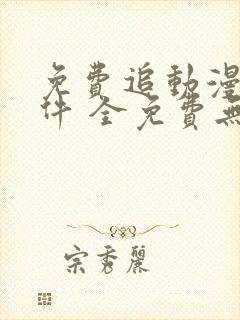 免費追動漫
件 全免費無
宗秀麗